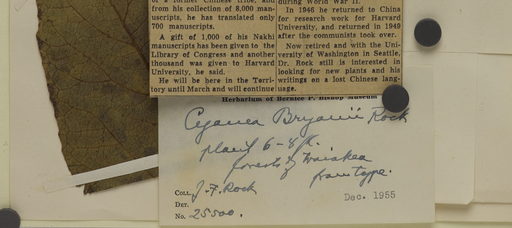 of a former Chinese tribe, and
from his collection of 8,000 man-
uscripts, he has translated only
700 manuscripts.
A gift of 1,000 of his Nakhi
manuscripts has been given to the
Library of Congress and another
thousand was given to Harvard
University, he said.
He will be here in the Terri-
tory until March and will continue
during World War II.
In 1946 he returned to China
for research work for Harvard
University, and returned in 1949
after the communists took over.
Now retired and with the Uni-
versity of Washington in Seattle,
Dr. Rock still is interested in
looking for new plants and his
writings on a lost Chinese lang-
uage.
Herbarium of Bernice P. Bishop Museum
Cyanea Bryanii Rock
plant 6-8 ft.
forests of Waiakea
from type.
COLL. J. F. Rock
DET.
Dec. 1955
No. 25500.